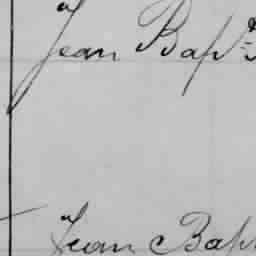 Jean Bapt
Jean Bapt